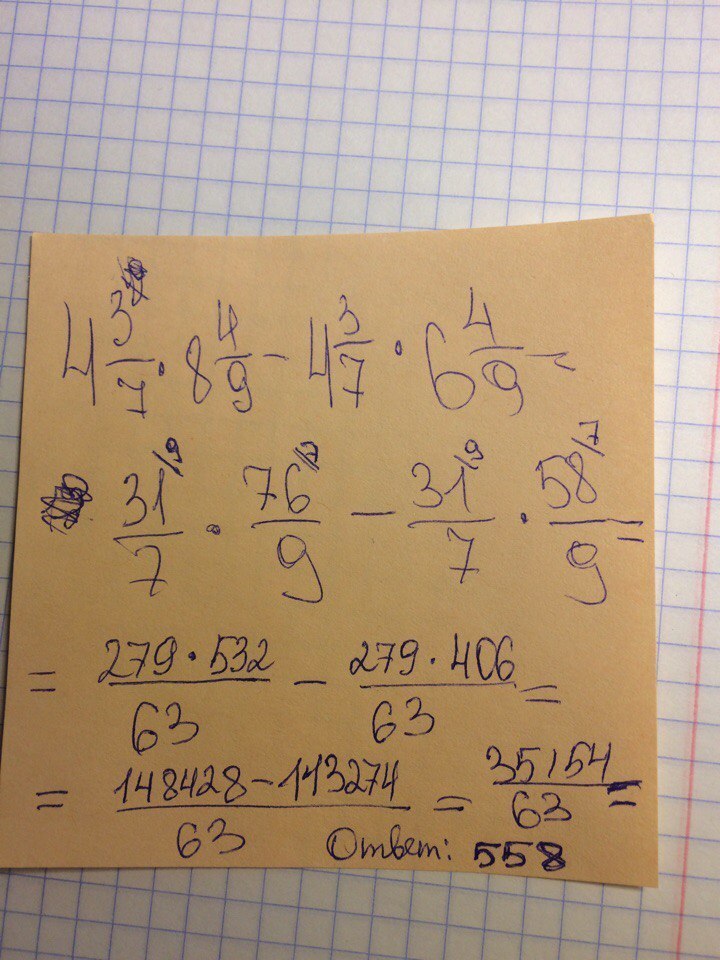 4 3/7 · 8 4/9 - 4 3/7 · 6 4/9 =
31/7 /9 · 76/9 /7 - 31/7 /9 · 58/9 /7 =
= 279 · 532/63 - 279 · 406/63 =
= 148428 - 113274/63 = 35154/63 =
Ответ: 558